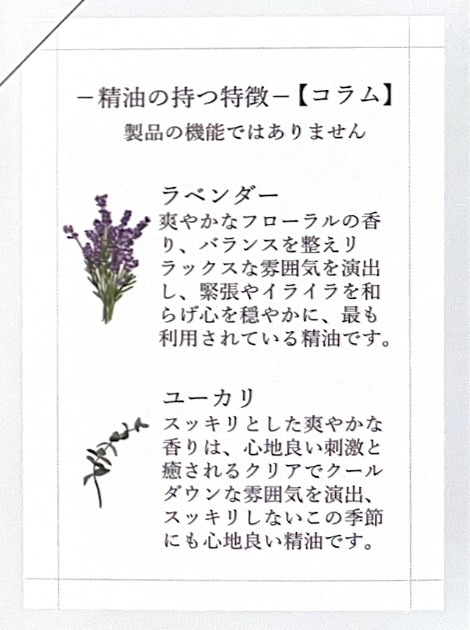 －精油の持つ特徴－【コラム】
製品の機能ではありません
ラベンダー
爽やかなフローラルの香
り、バランスを整えリ
ラックスな雰囲気を演出
し、緊張やイライラを和
らげ心を穏やかに、最も
利用されている精油です。
ユーカリ
スッキリとした爽やかな
香りは、心地良い刺激と
癒されるクリアでクール
ダウンな雰囲気を演出、
スッキリしないこの季節
にも心地良い精油です。